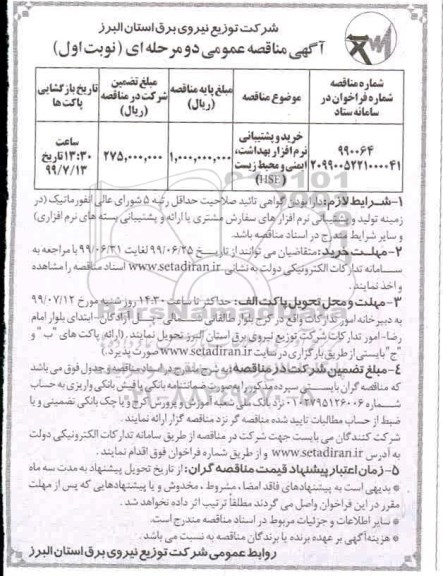 شرکت توزیع نیروی برق استان البرز
آگهی مناقصه عمومی دو مرحله ای (نوبت اول)
شماره مناقصه
شماره فراخوان در
سامانه ستاد
موضوع مناقصه
مبلغ پایه مناقصه
(ریال)
مبلغ تضمین
شرکت در مناقصه
(ریال)
تاریخ بازگشایی
پاکت ها
۹۹۰۰۶۴
۲۰۹۹۰۰۵۲۲۱۰۰۰۰۴۱
خرید و پشتیبانی
نرم افزار بهداشت،
ایمنی و محیط زیست
(HSE)
۱,۰۰۰,۰۰۰,۰۰۰
۲۷۵,۰۰۰,۰۰۰
ساعت
۱۳:۳۰ تاریخ
۹۹/۷/۱۳
۱-شرایط لازم: دارا بودن گواهی تائید صلاحیت حداقل رتبه ۵ شورای عالی انفورماتیک (در
زمینه تولید و پشتیبانی نرم افزار های سفارش مشتری یا ارائه و پشتیبانی بسته های نرم افزاری)
و سایر شرایط مندرج در اسناد مناقصه باشد.
۲-مهلت خرید: متقاضیان می توانند از تاریخ ۹۹/۰۶/۲۵ لغایت ۹۹/۰۶/۳۱ با مراجعه به
سامانه تدارکات الکترونیکی دولت به نشانی www.setadiran.ir اسناد مناقصه را مشاهده
و اخذ نمایند.
۳-مهلت و محل تحویل پاکت الف: حداکثر تا ساعت ۱۴:۳۰ روز شنبه مورخ ۹۹/۰۷/۱۲
به دبیرخانه امور تدارکات واقع در کرج بلوار طالقانی شمالی آزادگان-ابتدای بلوار امام
رضا-امور تدارکات شرکت توزیع نیروی برق استان البرز تحویل نمایند. (ارائه پاکت های "ب" و
"ج" بایستی از طریق بارگزاری در سایت www.setadiran.ir صورت پذیرد.)
۴-مبلغ تضمین شرکت در مناقصه: به شرح مندرج در اسناد مناقصه و جدول فوق می باشد
که مناقصه گران بایستی سپرده مذکور را به صورت ضمانتنامه بانکی یا فیش بانکی واریزی به حساب
شماره ۰۱۰۲۷۹۵۱۲۶۰۰۶ نزد بانک ملی شعبه آموزش و پرورش کرج و یا چک بانکی تضمینی و یا
ضبط از حساب مطالبات تایید شده مناقصه گر نزد مناقصه گزار ارائه نمایند.
شرکت کنندگان می بایست جهت شرکت در مناقصه از طریق سامانه تدارکات الکترونیکی دولت
به آدرس www.setadiran.ir و از طریق شماره فراخوان فوق اقدام نمایند.
۵-زمان اعتبار پیشنهاد قیمت مناقصه گران: از تاریخ تحویل پیشنهاد به مدت سه ماه
* بدیهی است به پیشنهادهای فاقد امضا، مشروط، مخدوش و یا پیشنهادهایی که پس از مهلت
مقرر در این فراخوان واصل می گردند مطلقاً ترتیب اثر داده نخواهد شد.
* سایر اطلاعات و جزئیات مربوط در اسناد مناقصه مندرج است.
* هزینه آگهی بر عهده برنده یا برندگان مناقصه به نسبت می باشد.
روابط عمومی شرکت توزیع نیروی برق استان البرز